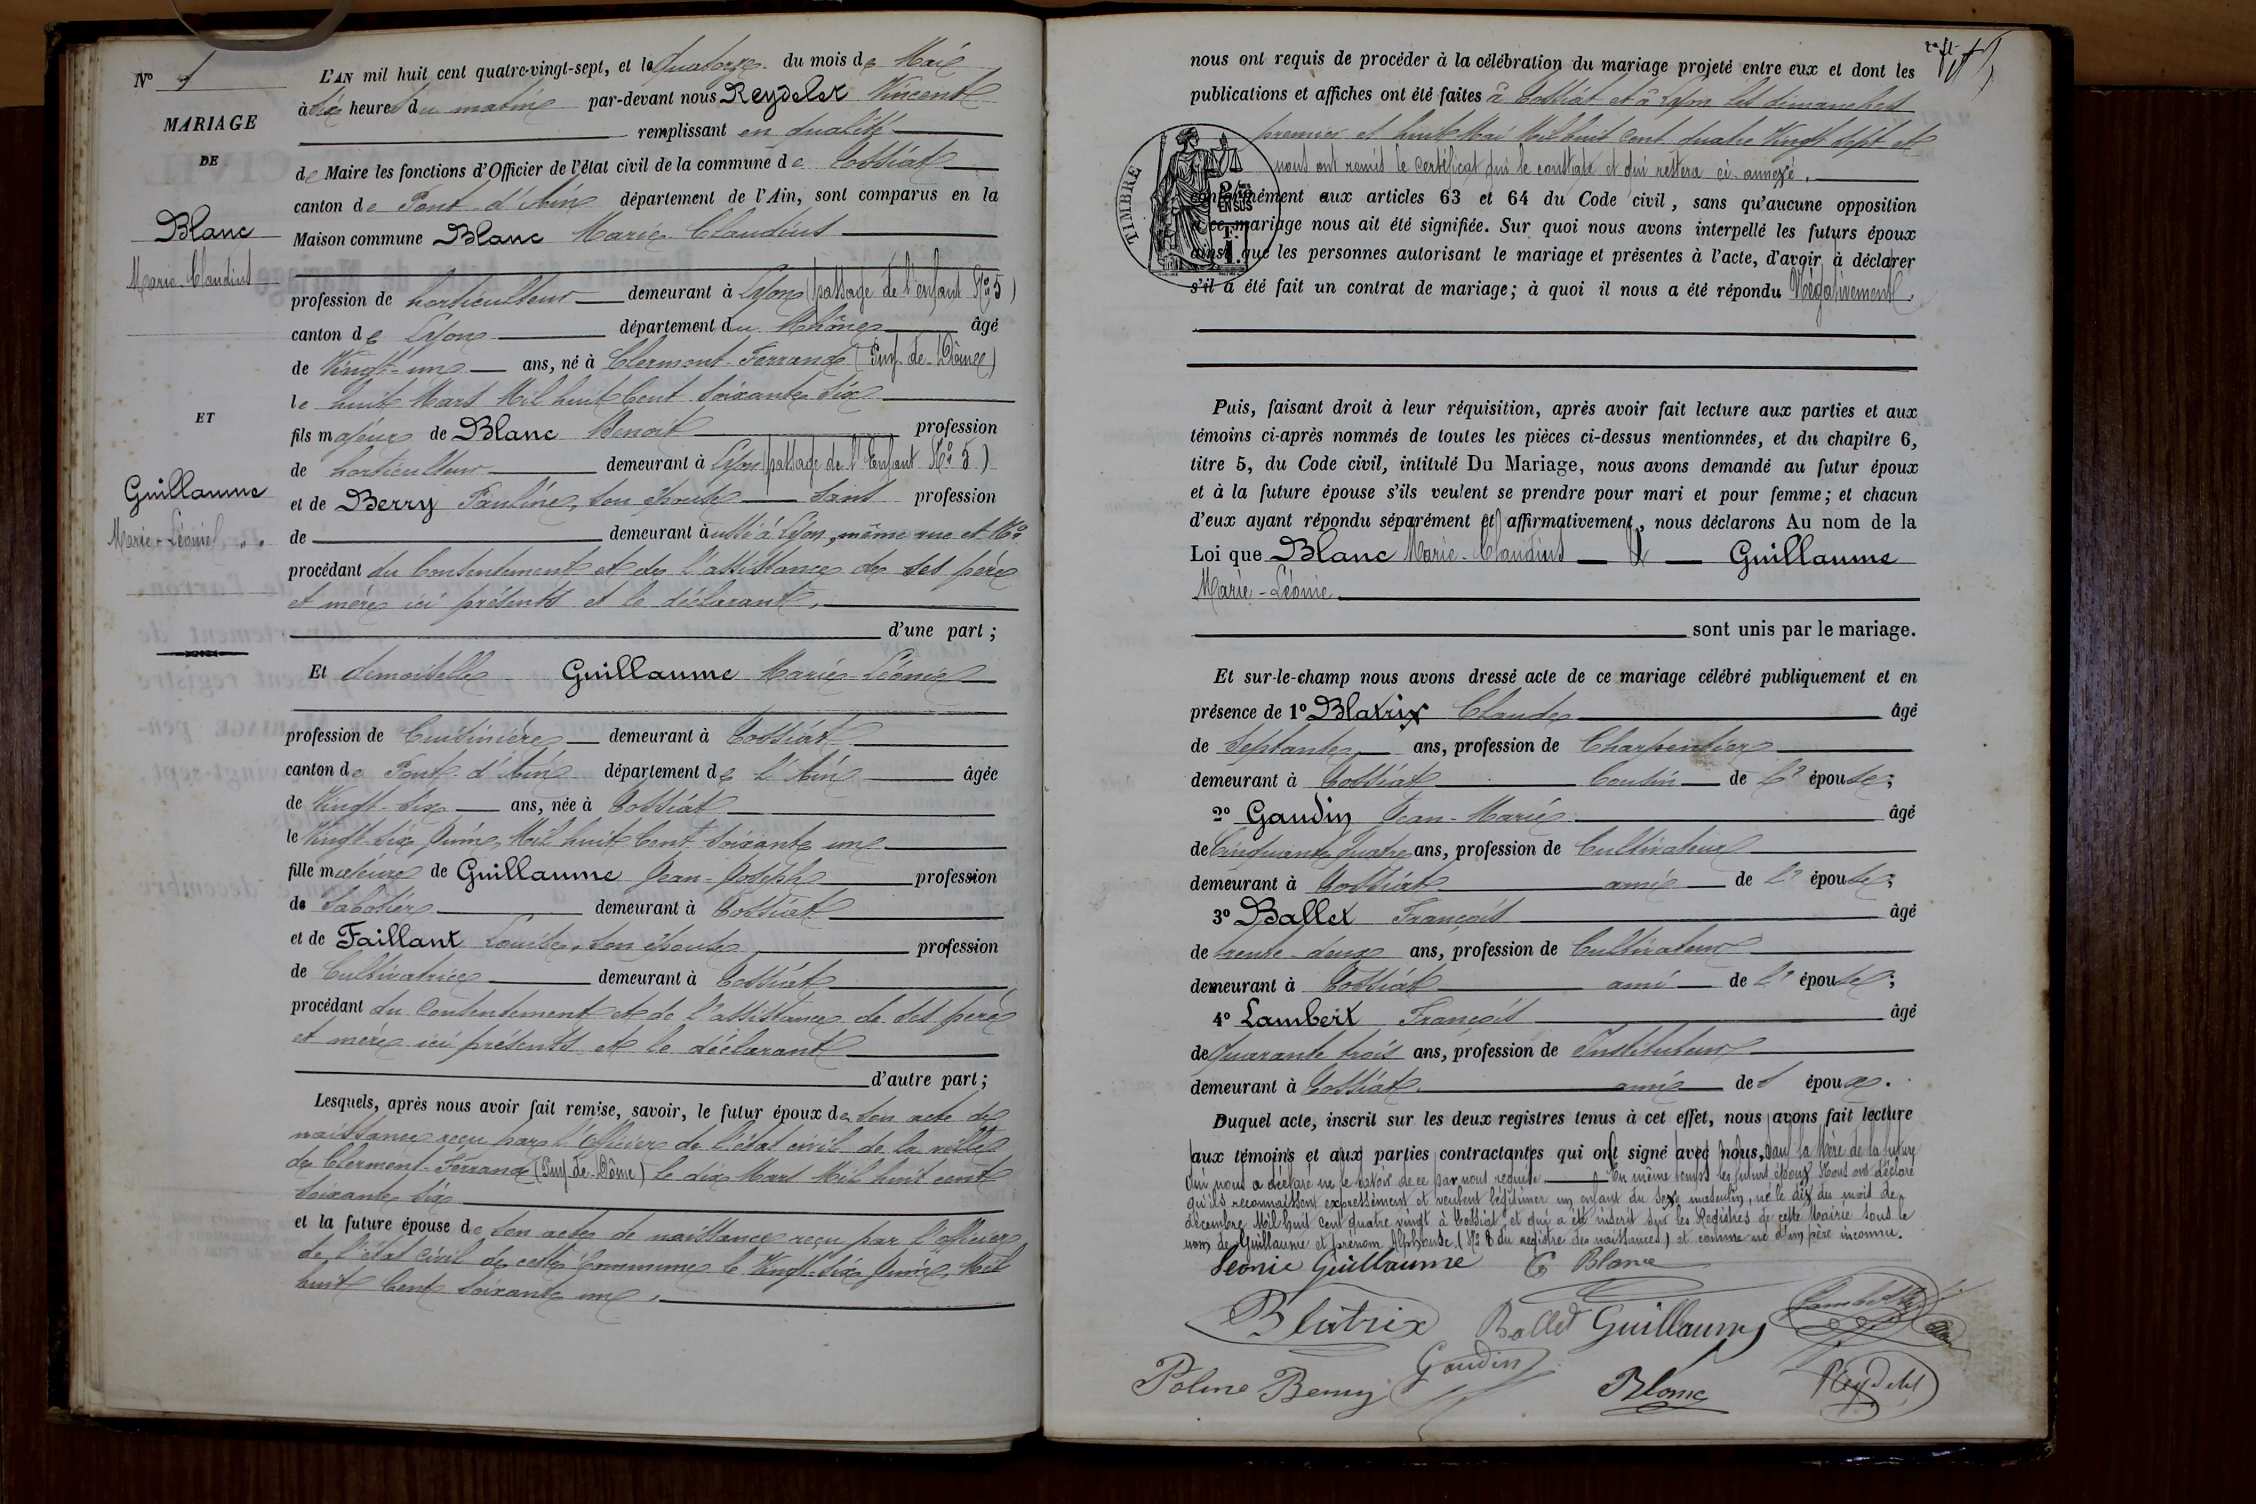 N° 1
MARIAGE
DE
Blanc
Marie Claudius
ET
Guillaume
Marie-Léonie
L'AN mil huit cent quatre-vingt-sept, et le quatorze du mois de Mai
à dix heures du matin par-devant nous Reydelet Vincent
remplissant en qualité
de Maire les fonctions d'Officier de l'état civil de la commune de Tossiat
canton de Pont-d'Ain département de l'Ain, sont comparus en la
Maison commune Blanc Marie Claudius
profession de horticulteur demeurant à Lyon (passage de l'enfant N° 5)
canton de Lyon département du Rhône âgé
de Vingt-un ans, né à Clermont-Ferrand (Puy-de-Dôme)
le huit Mars Mil huit Cent soixante six
fils majeur de Blanc Benoit profession
de horticulteur demeurant à Lyon (passage de l'Enfant N° 5)
et de Berry Pauline, son épouse sans profession
de demeurant aussi à Lyon, même rue et N°
procédant du Consentement et de l'assistance de ses père
et mère ici présents et le déclarant,
d'une part ;
Et demoiselle Guillaume Marie-Léonie
profession de Cuisinière demeurant à Tossiat
canton de Pont-d'Ain département de l'Ain âgée
de Vingt-six ans, née à Tossiat
le Vingt-six Juin, Mil huit Cent soixante une
fille majeure de Guillaume Jean-Joseph profession
de Sabotier demeurant à Tossiat
et de Faillant Louise, son épouse profession
de Cultivatrice demeurant à Tossiat
procédant du Consentement et de l'assistance de ses père
et mère ici présents et le déclarant
d'autre part ;
Lesquels, après nous avoir fait remise, savoir, le futur époux de son acte de
naissance reçu par l'officier de l'état civil de la ville
de Clermont-Ferrand (Puy-de-Dôme) le dix Mars Mil huit cent
soixante six
et la future épouse de son acte de naissance reçu par l'officier
de l'état civil de cette Commune le Vingt-six Juin, Mil
huit Cent soixante une.
nous ont requis de procéder à la célébration du mariage projeté entre eux et dont les
publications et affiches ont été faites à Tossiat et à Lyon les dimanches
premier et huit Mai Mil huit cent quatre Vingt sept et
nous ont remis le certificat qui le constate et qui restera ci-annexé.
TIMBRE
2/10 EN SUS
conformément aux articles 63 et 64 du Code civil, sans qu'aucune opposition
à ce mariage nous ait été signifiée. Sur quoi nous avons interpellé les futurs époux
ainsi que les personnes autorisant le mariage et présentes à l'acte, d'avoir à déclarer
s'il a été fait un contrat de mariage; à quoi il nous a été répondu Négativement.
Puis, faisant droit à leur réquisition, après avoir fait lecture aux parties et aux
témoins ci-après nommés de toutes les pièces ci-dessus mentionnées, et du chapitre 6,
titre 5, du Code civil, intitulé Du Mariage, nous avons demandé au futur époux
et à la future épouse s'ils veulent se prendre pour mari et pour femme; et chacun
d'eux ayant répondu séparément et affirmativement, nous déclarons Au nom de la
Loi que Blanc Marie-Claudius & Guillaume
Marie-Léonie
sont unis par le mariage.
Et sur-le-champ nous avons dressé acte de ce mariage célébré publiquement et en
présence de 1° Blatrix Claude âgé
de Septante ans, profession de Charpentier
demeurant à Tossiat Cousin de l' épouse;
2° Gaudin Jean-Marie âgé
de Cinquante quatre ans, profession de Cultivateur
demeurant à Tossiat ami de l' épouse;
3° Ballet François âgé
de trente-deux ans, profession de Cultivateur
demeurant à Tossiat ami de l' épouse;
4° Lambert François âgé
de quarante trois ans, profession de Instituteur
demeurant à Tossiat ami de l' époux.
Duquel acte, inscrit sur les deux registres tenus à cet effet, nous avons fait lecture
aux témoins et aux parties contractantes qui ont signé avec nous, sauf la Mère de la future
qui nous a déclaré ne le savoir de ce par nous requise. En même temps les futurs époux Nous ont déclaré
qu'ils reconnaissent expressément et veulent légitimer un enfant du sexe masculin, né le dix du mois de
décembre Mil huit cent quatre vingt à Tossiat, et qui a été inscrit sur les Registres de cette Mairie sous le
nom de Guillaume et prénom Alphonse (N° 8 du registre des naissances) et comme né d'un père inconnu.
Léonie Guillaume C Blanc
Blatrix Ballet Guillaume Lambert
Poline Berry Gaudin Blanc Reydelet